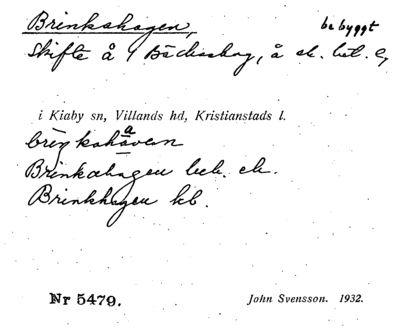 Brinkahagen, bebyggt
Skifte å 4 Bäckaskog, å ek. bl. 
i Kiaby sn, Villands hd, Kristianstads l.
Brinkahagen beb. ek.
Brinkhagen kb.
Nr 5479. John Svensson. 1932.